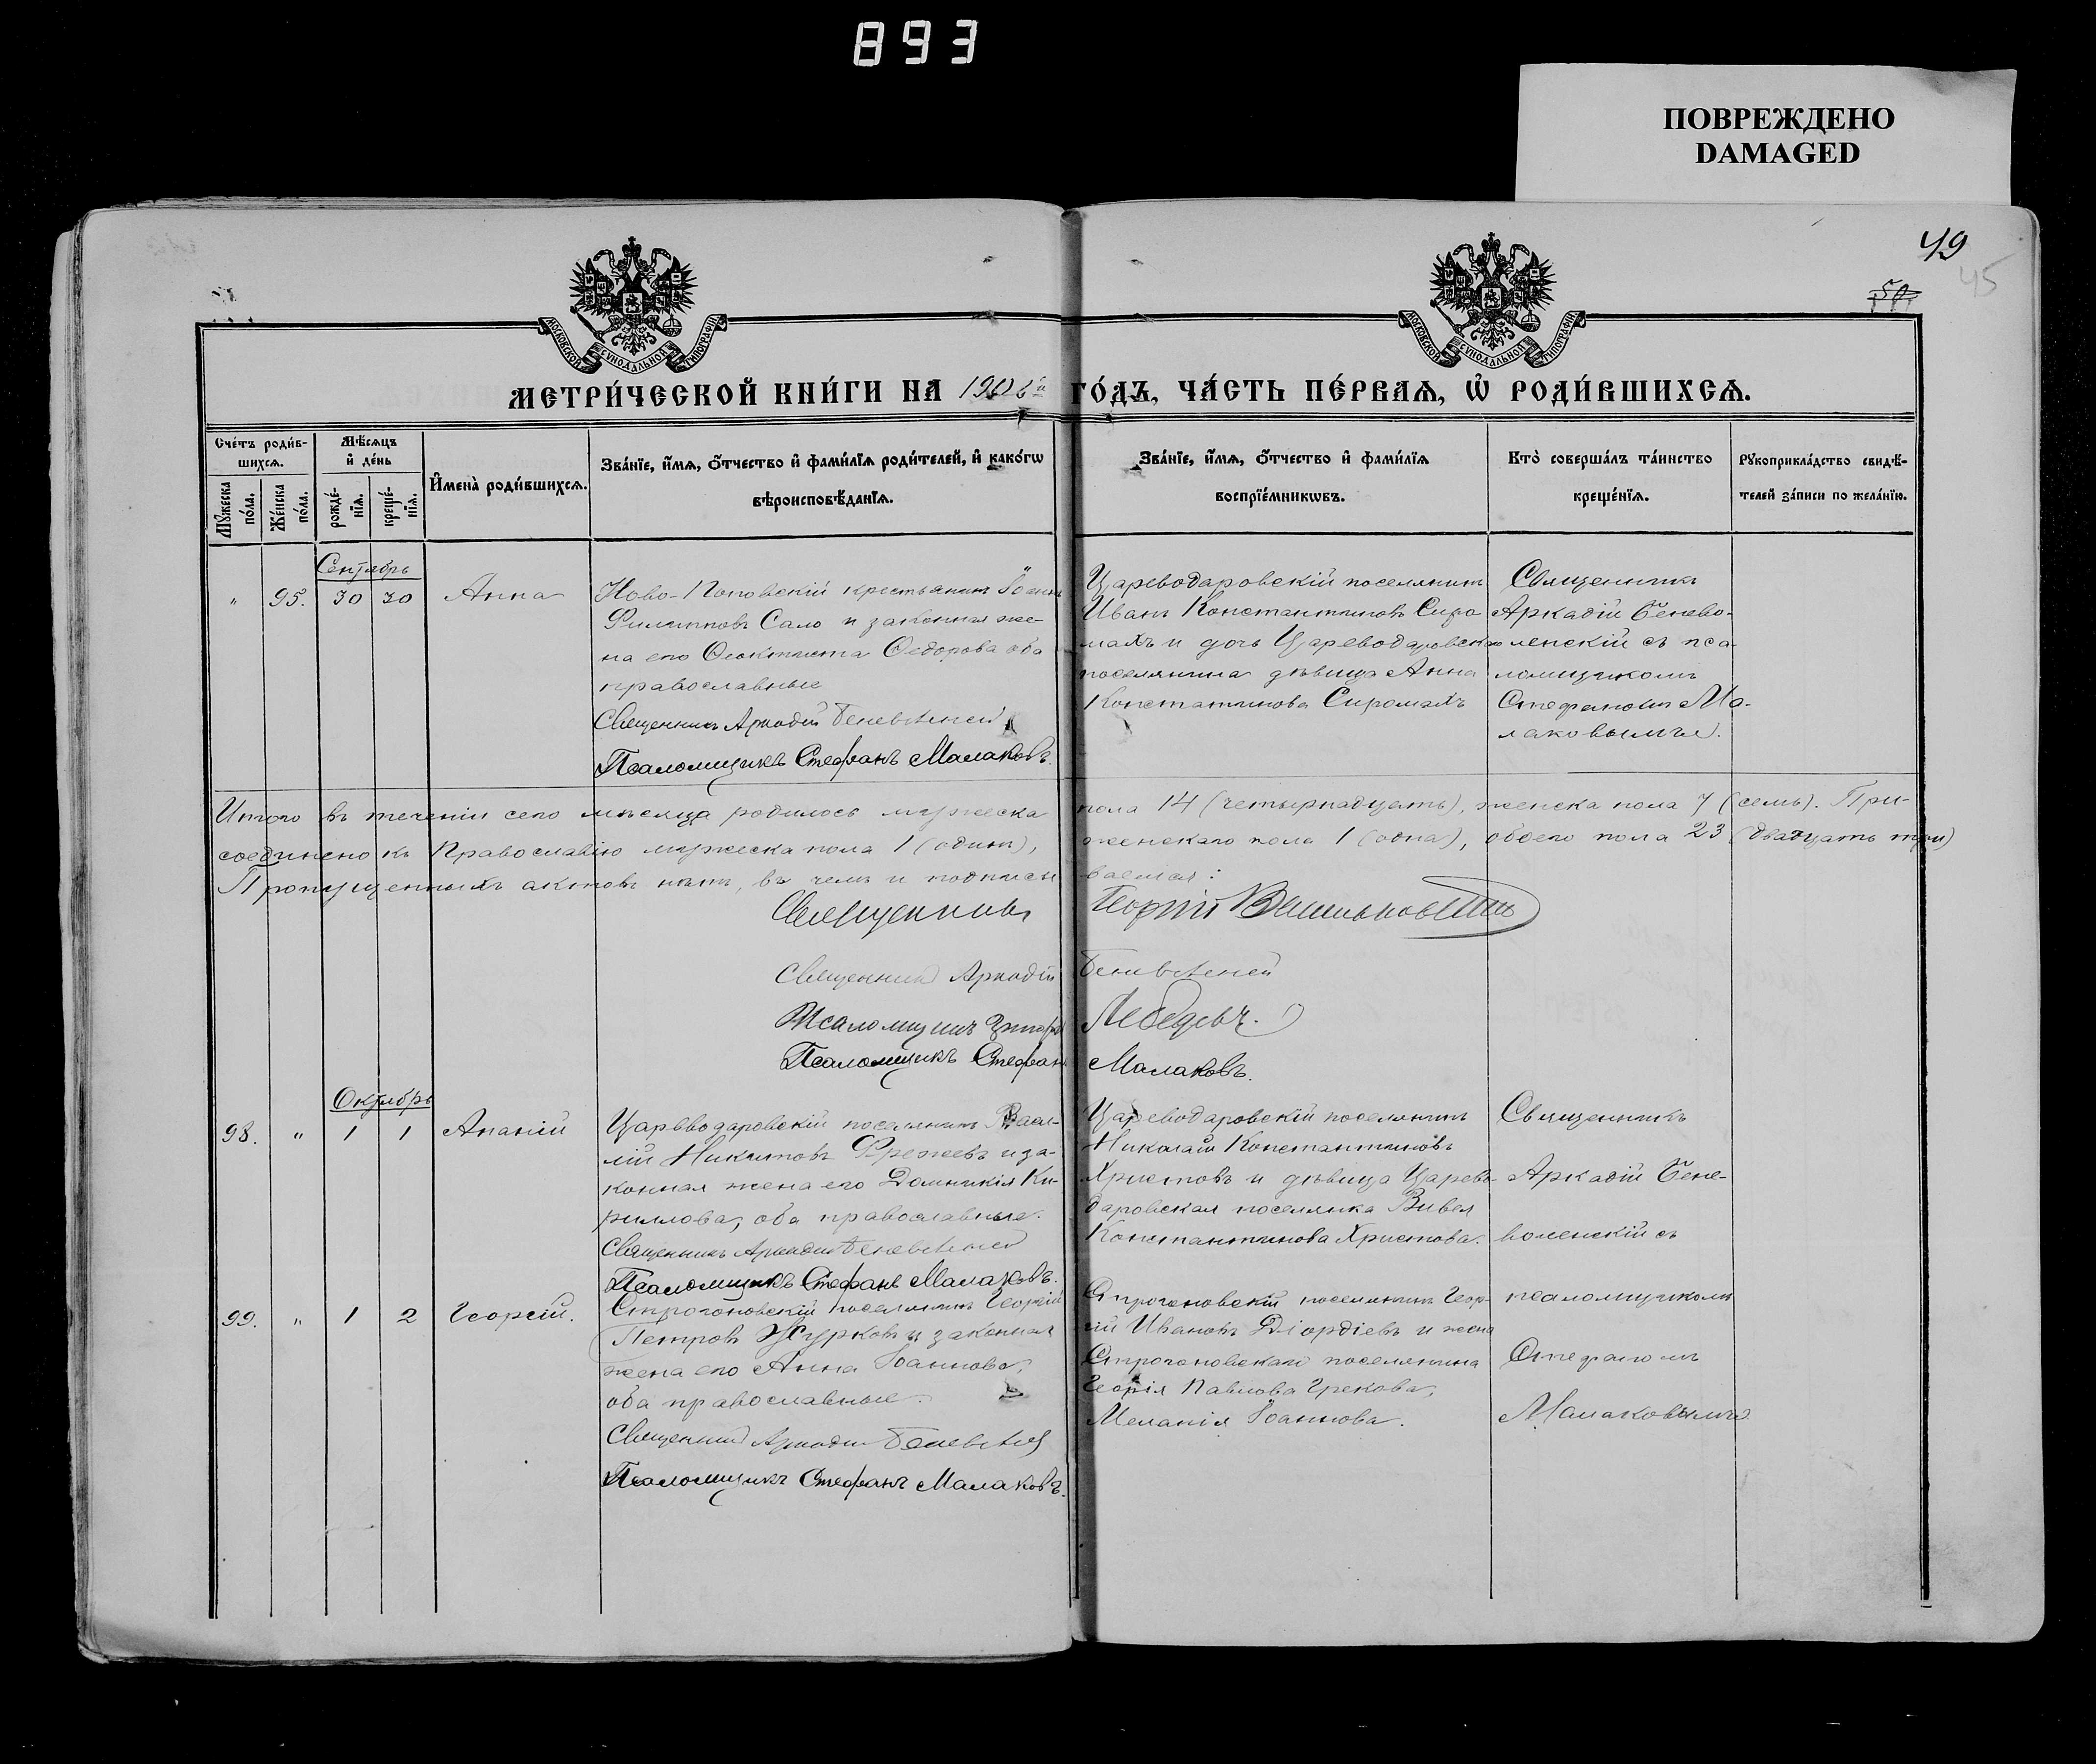 893
ПОВРЕЖДЕНО
DAMAGED
49
45
50
МОСКОВСКОЙ СУНОДАЛЬНОЙ ТИПОГРАФІИ
МОСКОВСКОЙ СУНОДАЛЬНОЙ ТИПОГРАФІИ
МЕТРИ́ЧЕСКОЙ КНИ́ГИ НА 190 ГО́ДЪ, ЧА́СТЬ ПЕ́РВАѦ, Ѡ҆ РОДИ́ВШИХСѦ.
Сче́тъ роди́в-
шихсѧ.
Мѣ́сѧцъ
и҆ де́нь
И҆мена̀ роди́вшихсѧ.
Зва́нїе, и҆́мѧ, ѻ҆́тчество и҆ фами́лїѧ роди́телей, и҆ како́гѡ
вѣроисповѣ́данїѧ.
Зва́нїе, и҆́мѧ, ѻ҆́тчество и҆ фами́лїѧ
воспрїе́мникѡвъ.
Кто̀ соверша́лъ та́инство
креще́нїѧ.
Рꙋкоприкла́дство свидѣ́-
телей за́писи по жела́нїю.
Мꙋ́жеска
по́ла.
Же́нска
по́ла.
рожде́-
нїѧ.
креще́-
нїѧ.
Сентябрь
" 95. 30 30 Анна
Ново-Поповскій крестьянинъ Іоаннъ
Филипповъ Сало и законная же-
на его Ѳеоктиста Ѳедорова оба
православные
Священникъ Аркадій Беневоленскій
Псаломщикъ Стефанъ Малаковъ.
Цареводаровскій поселянинъ
Иванъ Константиновъ Сиро-
махъ и дочь Цареводаровскаго
поселянина дѣвица Анна
Константинова Сиромахъ
Священникъ
Аркадій Бенево-
ленскій съ пса-
ломщикомъ
Стефаномъ Ма-
лаковымъ.
Итого въ теченіи сего мѣсяца родилось мужеска пола 14 (четырнадцать), женска пола 7 (семь). При-
соединено къ Православію мужеска пола 1 (одинъ), женскаго пола 1 (одна), обоего пола 23 (двадцать три)
Пропущенныхъ актовъ нѣтъ, въ чемъ и подписываемся:
Священникъ Георгій
Священникъ Аркадій Беневоленскій
Псаломщикъ Лебедевъ.
Псаломщикъ Стефанъ Малаковъ.
Октябрь
98. " 1 1 Ананій
Цареводаровскій поселянинъ Васи-
лій Никитовъ Фрежевъ и за-
конная жена его Домникія Ки-
риллова, оба православные.
Священникъ Аркадій Беневоленскій
Псаломщикъ Стефанъ Малаковъ.
Цареводаровскій поселянинъ
Николай Константиновъ
Христовъ и дѣвица Царево-
даровская поселянка Вивея
Константинова Христова.
Священникъ
Аркадій Бене-
воленскій съ
99. " 1 2 Георгій.
Строгоновскій поселянинъ Георгій
Петровъ Журковъ и законная
жена его Анна Іоаннова,
оба православные.
Священникъ Аркадій Беневоленскій
Псаломщикъ Стефанъ Малаковъ.
Строгоновскій поселянинъ Геор-
гій Ивановъ Діордіевъ и жена
Строгоновскаго поселянина
Георгія Павлова Грекова,
Меланія Іоаннова.
псаломщикомъ
Стефаномъ
Малаковымъ